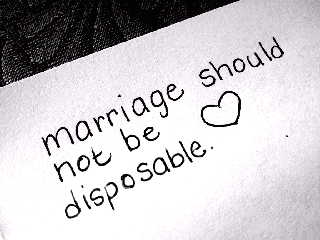 marriage should
not be
disposable.